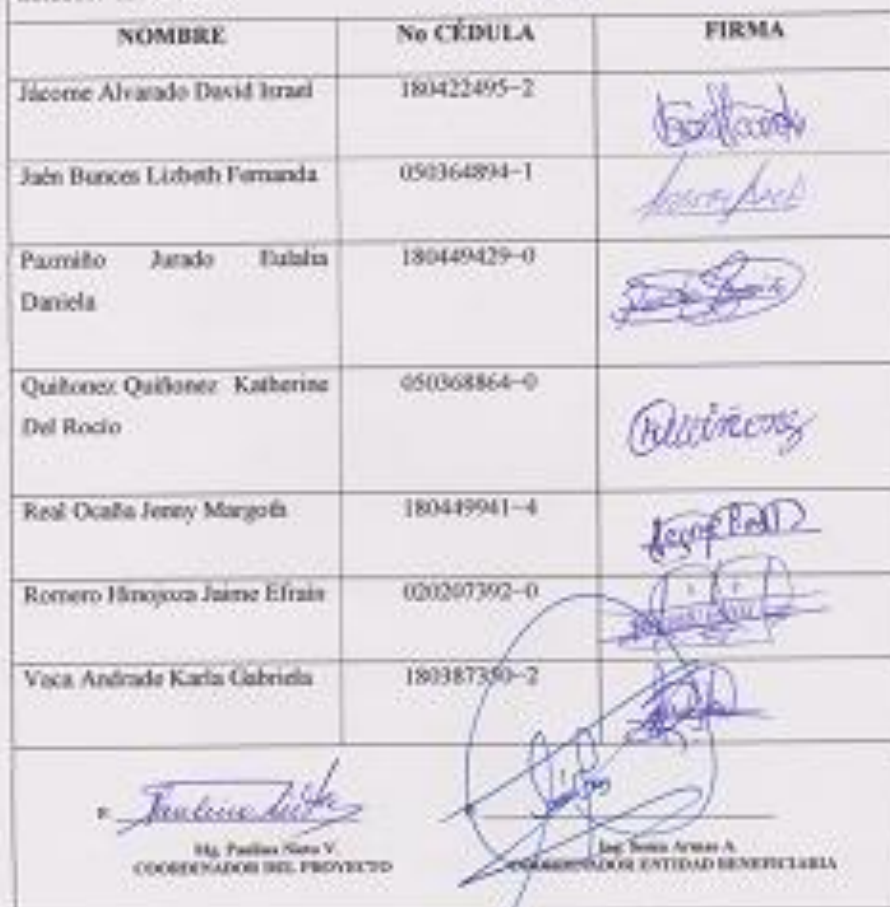 NOMBRE No CÉDULA FIRMA
Jácome Alvarado David Israel 180422495-2
Jaén Bunces Lizbeth Fernanda 050364894-1
Pazmiño Jurado Eulalia 180449429-0
Daniela
Quiñonez Quiñonez Katherine 050368864-0
Del Rocío
Real Ocaña Jenny Margoth 180449941-4
Romero Hinojoza Jaime Efraín 020207392-0
Vaca Andrade Karla Gabriela 180387350-2
Mg. Paulina Nieto V. Ing. Armas A.
COORDINADOR DEL PROYECTO COORDINADOR ENTIDAD BENEFICIARIA